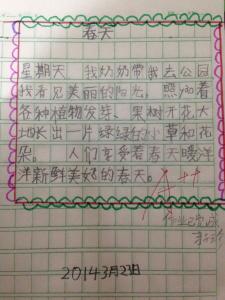 春天
星期天，我奶奶带我去公园
我看见美丽的阳光，照yào着
各种植物发芽、果树开花大
地长出一片绿绿的小草和花
朵。 人们享受着春天暖洋
洋新鲜美好的春天。
A++
作业已完成
2014 3月23日